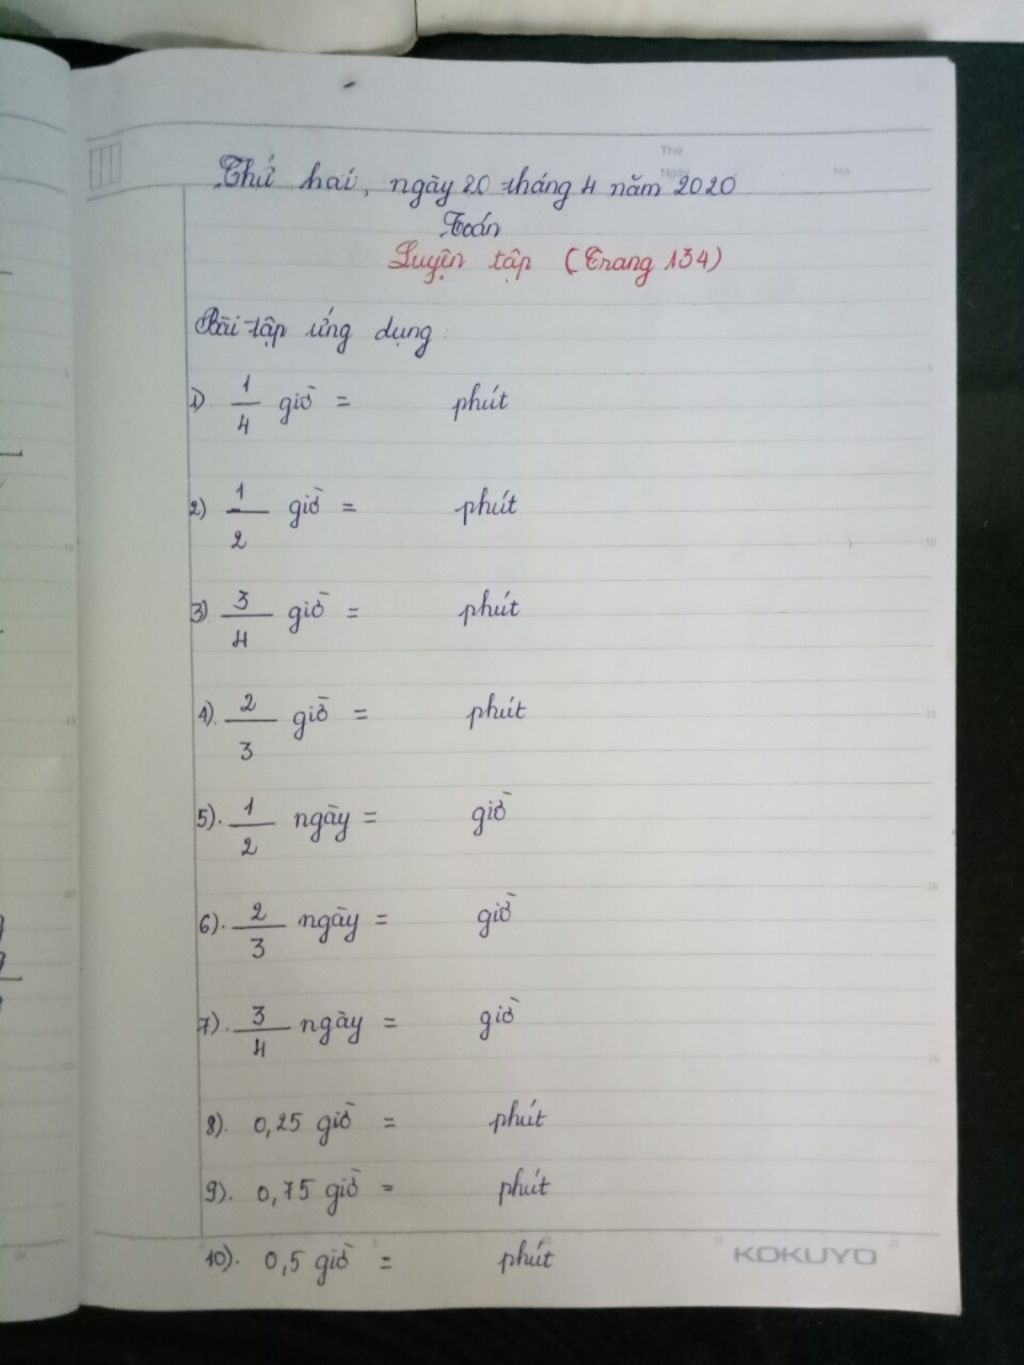 Thứ
Ngày
No.
Thứ hai, ngày 20 tháng 4 năm 2020
Toán
Luyện tập (Trang 134)
Bài tập ứng dụng:
1) 1/4 giờ = phút
2) 1/2 giờ = phút
3) 3/4 giờ = phút
4). 2/3 giờ = phút
5). 1/2 ngày = giờ
6). 2/3 ngày = giờ
7). 3/4 ngày = giờ
8). 0,25 giờ = phút
9). 0,75 giờ = phút
10). 0,5 giờ = phút
KOKUYO